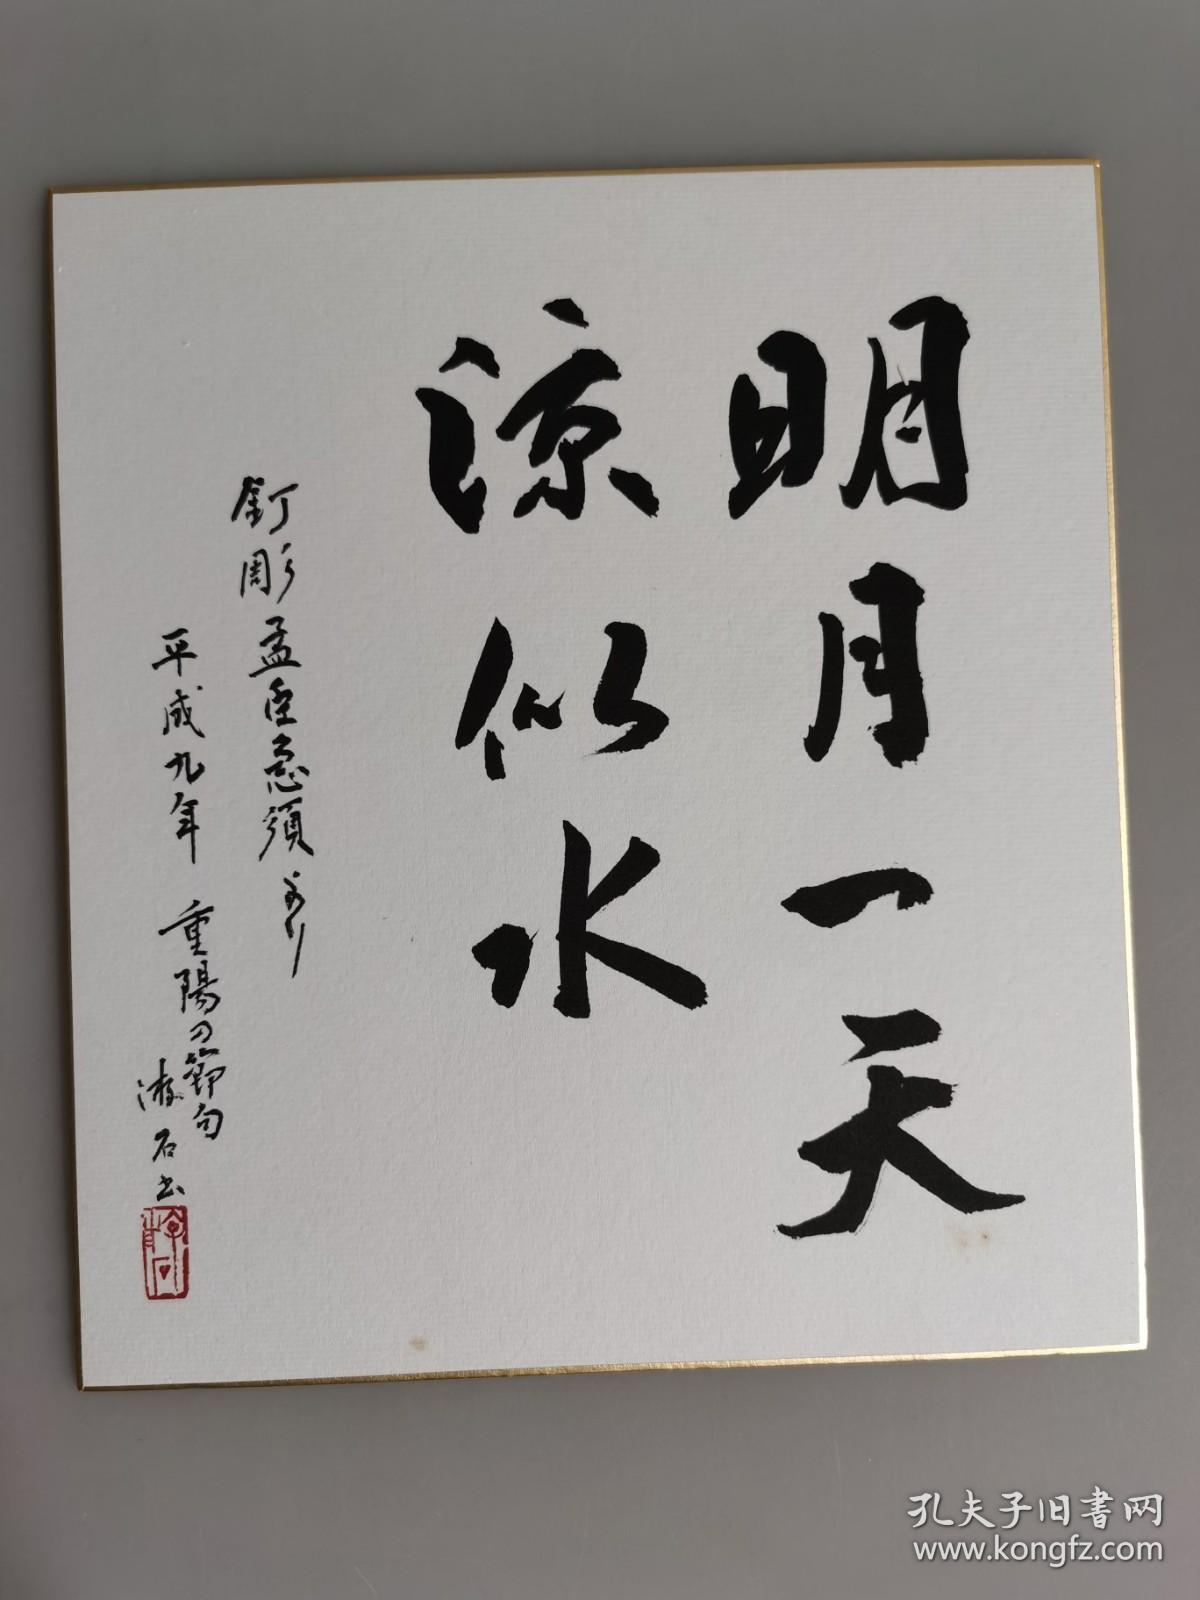 明月一天
涼似水
釘彫孟臣急須より
平成九年 重陽の節句
游石书
孔夫子旧书网
www.kongfz.com